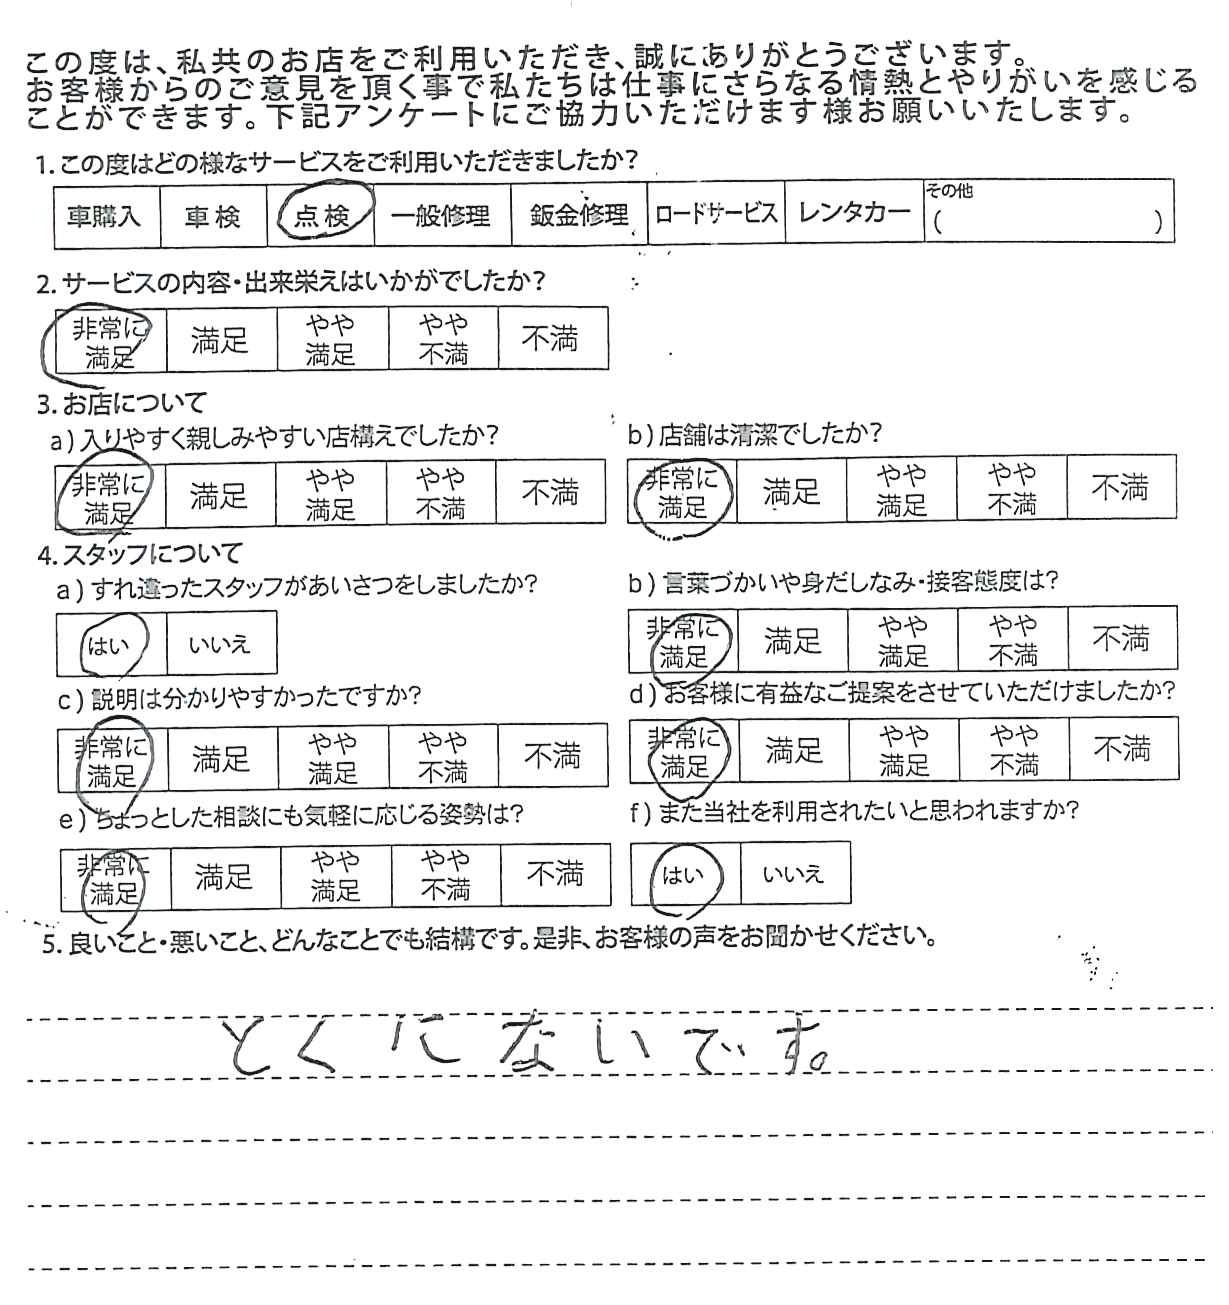 この度は、私共のお店をご利用いただき、誠にありがとうございます。
お客様からのご意見を頂く事で私たちは仕事にさらなる情熱とやりがいを感じる
ことができます。下記アンケートにご協力いただけます様お願いいたします。
1.この度はどの様なサービスをご利用いただきましたか?
車購入 車検 点検 一般修理 鈑金修理 ロードサービス レンタカー その他
( )
2.サービスの内容・出来栄えはいかがでしたか?
非常に 満足 やや やや 不満
満足 満足 不満
3.お店について
a)入りやすく親しみやすい店構えでしたか? b)店舗は清潔でしたか?
非常に 満足 やや やや 不満 非常に 満足 やや やや 不満
満足 満足 不満 満足 満足 不満
4.スタッフについて
a)すれ違ったスタッフがあいさつをしましたか? b)言葉づかいや身だしなみ・接客態度は?
はい いいえ 非常に 満足 やや やや 不満
満足 満足 不満
c)説明は分かりやすかったですか? d)お客様に有益なご提案をさせていただけましたか?
非常に 満足 やや やや 不満 非常に 満足 やや やや 不満
満足 満足 不満 満足 満足 不満
e)ちょっとした相談にも気軽に応じる姿勢は? f)また当社を利用されたいと思われますか?
非常に 満足 やや やや 不満 はい いいえ
満足 満足 不満
5.良いこと・悪いこと、どんなことでも結構です。是非、お客様の声をお聞かせください。
とくにないです。